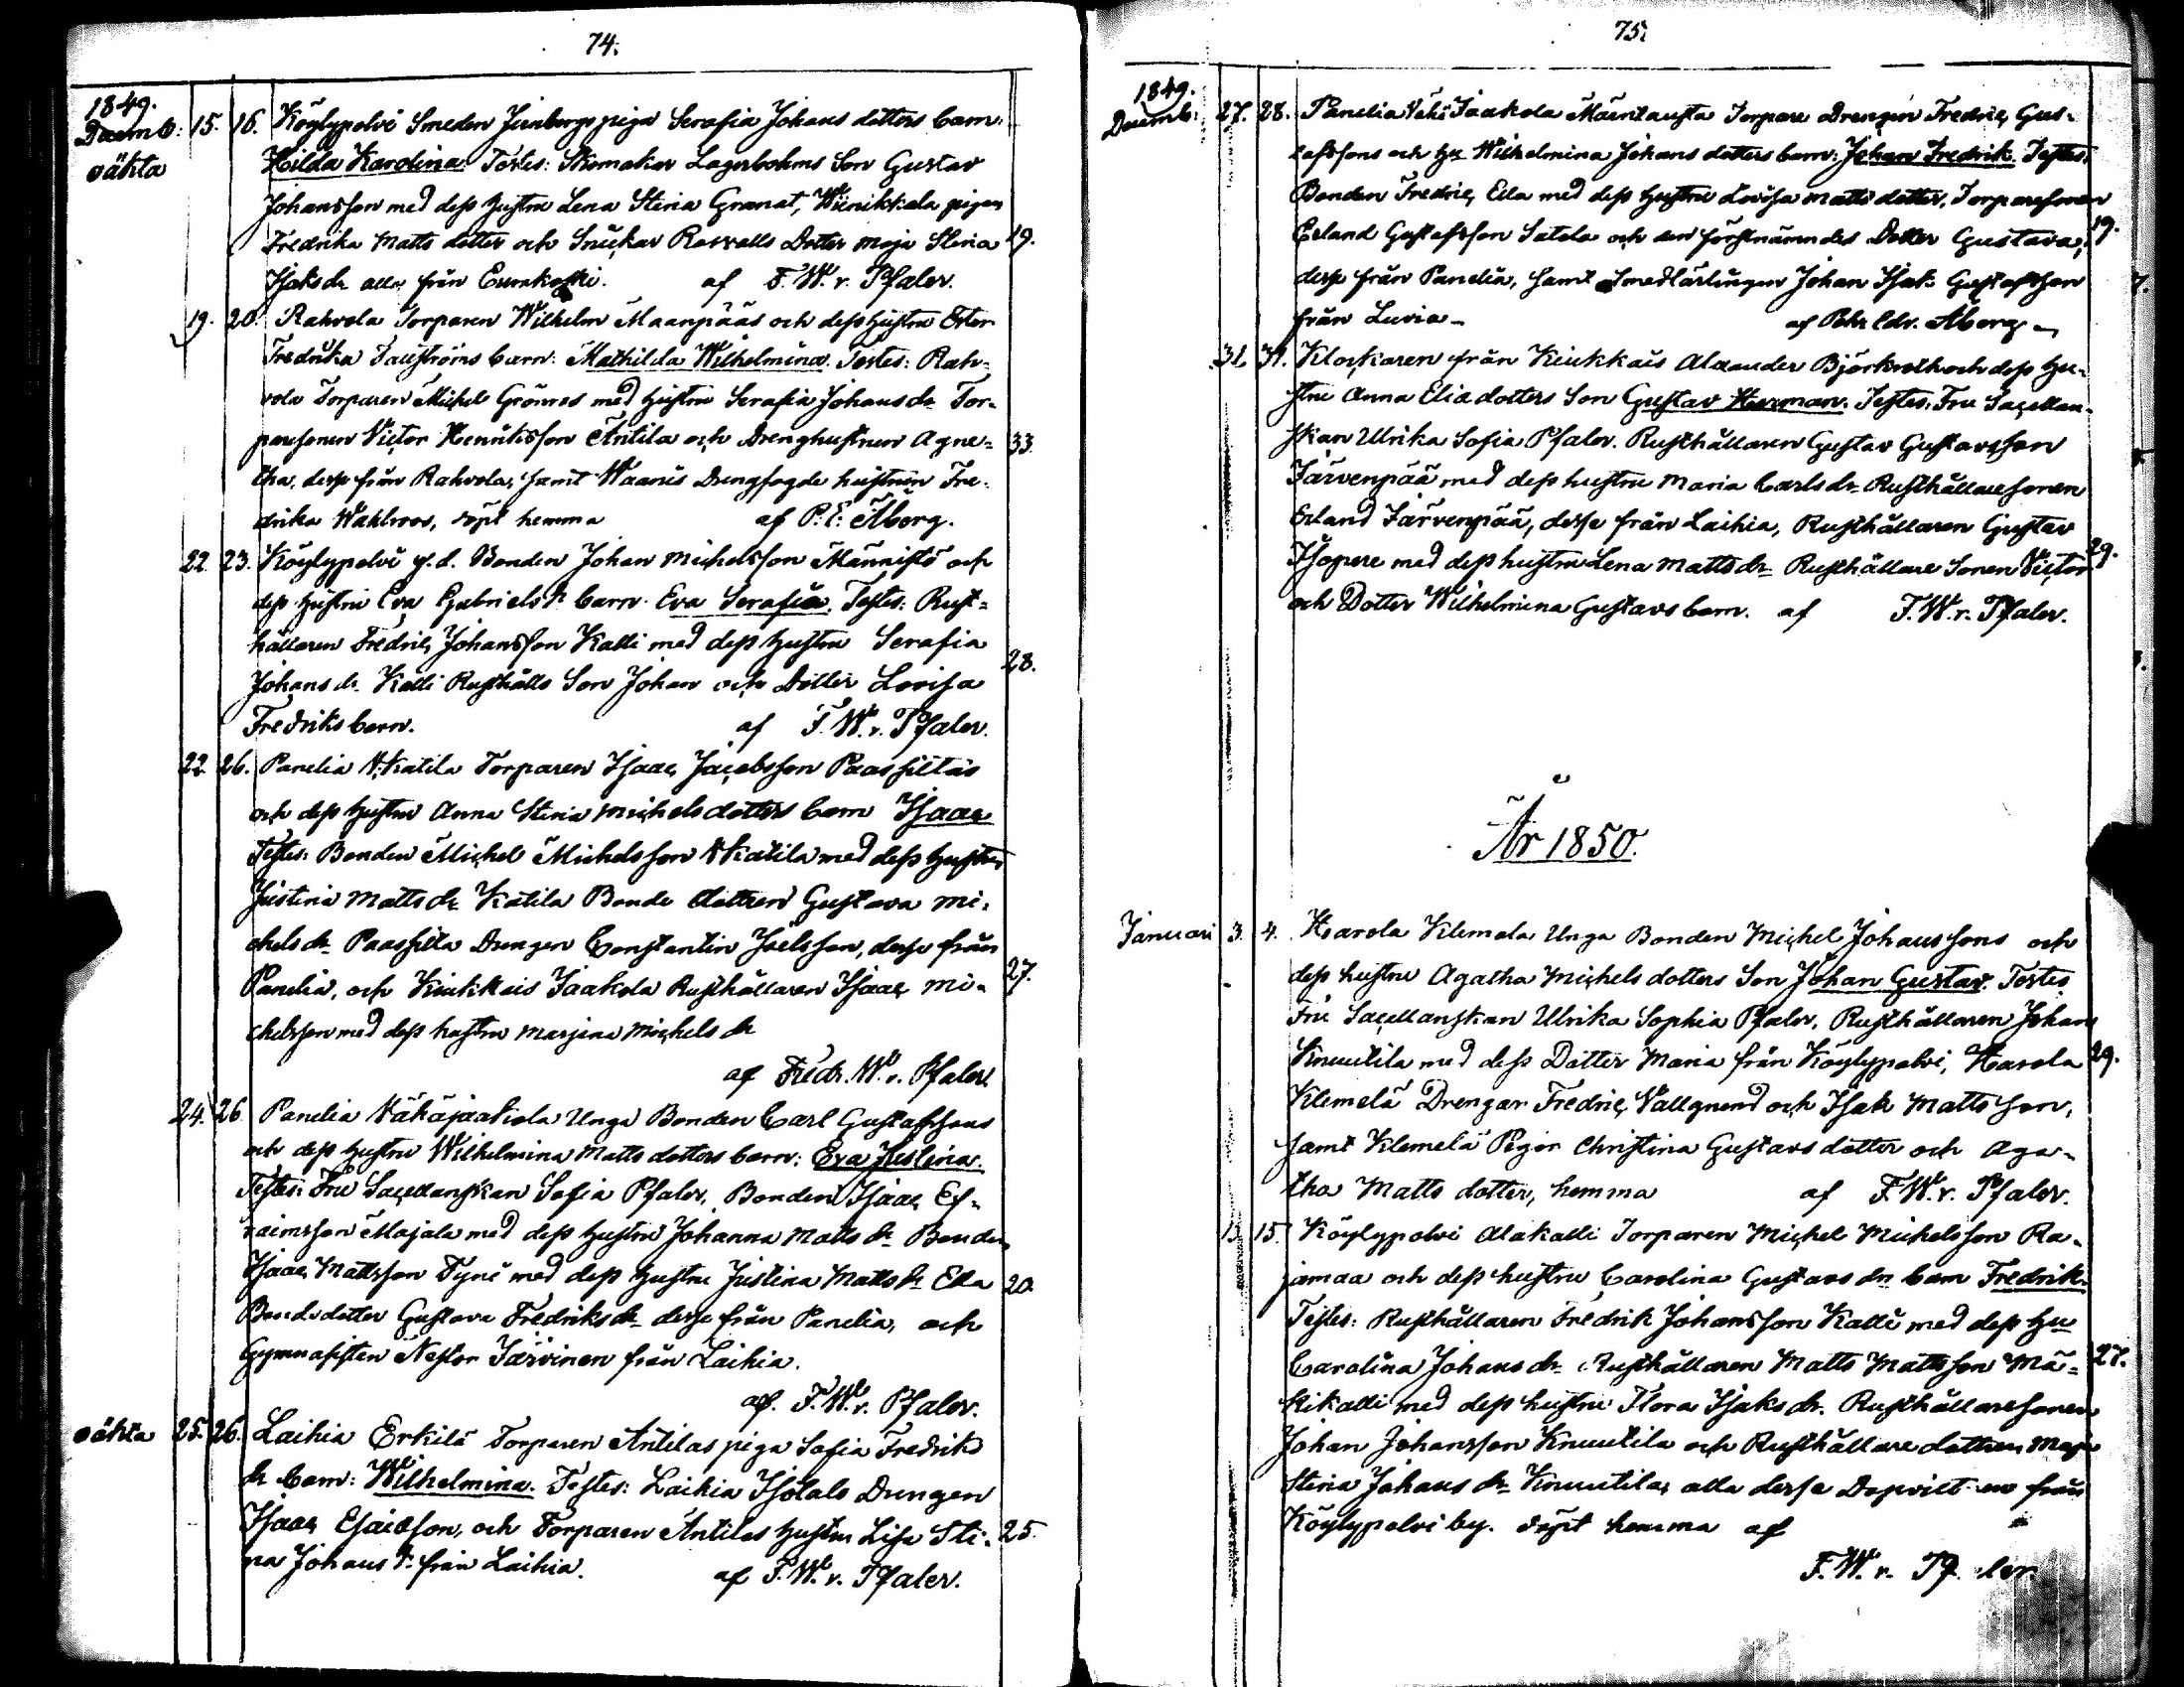 74.
1849.
Decemb:
oäkta
15. 16. Köylypolvi Smeden Jernbergs piga Serafia Johans dotters barn.
Hilda Karolina Testes: Skomakar Lagerbohms Son Gustav
Johansson med dess hustru Lena Stina Granat, Wiinikkala pigan
Fredrika Matts dotter och Snickar Rosvalls Dotter Maja Stina 19.
Isaks dr alla från Eurakoski. af F. W. v. Pfaler.
19. 20. Rahvola Torparen Wilhelm Maanpääs och dess hustru Ester
Fredrika Tallströms barn: Mathilda Wilhelmina. Testes: Rah-
vola Torparen Michel Grönros med hustru Serafia Johans dr Tor-
paresonen Victor Henriksson Antila och Drenghustrun Agne- 33.
tha, desse från Rahvola, samt Waanis Drengfogde hustrun Fre-
drika Wahlroos, döpt hemma af P. E. Åberg.
22. 23. Köylypolvi g. d. Bonden Johan Michelsson Männistö och
dess hustru Eva Gabriels dr barn Eva Serafia. Testes: Rust-
hållaren Fredric Johansson Kalli med dess hustru Serafia
Johans dr. Kalli Rusthålls Son Johan och Dotter Lovisa 28.
Fredriks barn. af F. W. v. Pfaler.
22. 26. Panelia N. Katila Torparen Isaac Jacobsson Paassiltas
och dess hustru Anna Stina Michelsdotters barn Isaac
Testes: Bonden Michel Michelsson N Katila med dess hustru
Justina Matts dr Katila Bonde dottren Gustava Mi-
chels dr Paassilta Drengen Constantin Joelsson, desse från
Panelia, och Kiukkais Jaakola Rusthållaren Isaac Mi- 27.
chelsson med dess hustru Marjina Michels dr
af Fredr. W. v. Pfaler.
24. 26. Panelia Vähäjaakola Unga Bonden Carl Gustafssons
och dess hustru Wilhelmina Matts dotters barn: Eva Justina.
Testes: Fru Sacellanskan Sofia Pfaler, Bonden Isaac Ef-
raimsson Majala med dess hustru Johanna Matts dr Bonden
Isaac Mattsson Tyni med dess hustru Justina Matts dr Ella 20.
Bondedotter Gustava Fredriks dr desse från Panelia, och
Gymnasisten Nestor Järvinen från Laihia.
af. F. W. v. Pfaler.
oäkta 25. 26. Laihia Erkilä Torparen Antilas piga Sofia Fredriks
dr barn: Wilhelmina. Testes: Laihia Isotalo Drengen
Isaac Esaiasson, och Torparen Antilas hustru Lisa Sti- 25.
na Johans dr från Laihia. af F. W. v. Pfaler.
75.
1849.
Decemb: 27. 28. Panelia Vähä Jaakola Mäenlausta Torpare Drengen Fredric Gus-
tafssons och hu Wilhelmina Johans dotters barn: Johan Fredrik. Testes:
Bonden Fredric Ella med dess hustru Lovisa Matts dotter, Torparesonen
Erland Gustafsson Satola och den förstnämndes Dotter Gustava, 19.
desse från Panelia, samt Smedlärlingen Johan Isak Gustafsson
från Luvia af Pehr Edv. Åberg
31. 31. Klockaren från Kiukkais Alexander Björkroth och dess hu-
stru Anna Elia dotters Son Gustav Herman. Testes: Fru Sacellan-
skan Ulrika Sofia Pfaler. Rusthållaren Gustav Gustavsson
Järvenpää med dess hustru Maria Carls dr Rusthållaresonen
Erland Järvenpää, desse från Laihia, Rusthållaren Gustav
Isopere med dess hustru Lena Matts dr Rusthållare Sonen Victor 29.
och Dotter Wilhelmina Gustavs barn. af F. W. v. Pfaler.
År 1850.
Januari 3. 4. Harola Klemola Unga Bonden Michel Johanssons och
dess hustru Agatha Michels dotters Son Johan Gustav. Testes
Fru Sacellanskan Ulrika Sophia Pfaler, Rusthållaren Johan
Knuutila med dess Dotter Maria från Köylypolvi, Harola 29.
Klemelä Drengar Fredric Vallgren och Isak Matts son,
samt Klemelä Pigor Christina Gustavs dotter och Aga-
tha Matts dotter, hemma af F. W. v. Pfaler.
13. 15. Köylypolvi Alakalli Torparen Michel Michelsson Ra-
jamaa och dess hustru Carolina Gustavs dr barn Fredrik.
Testes: Rusthållaren Fredrik Johansson Kalli med dess hu
Carolina Johans dr Rusthållaren Matts Mattsson Mä- 27.
kikalli med dess hustru Flora Isaks dr. Rusthållaresonen
Johan Johansson Knuutila och Rusthållare dottren Maja
Stina Johans dr Knuutila, alla desse Dopvittnen från
Köylypolvi by. döpt hemma af
F. W. v. Pfaler.